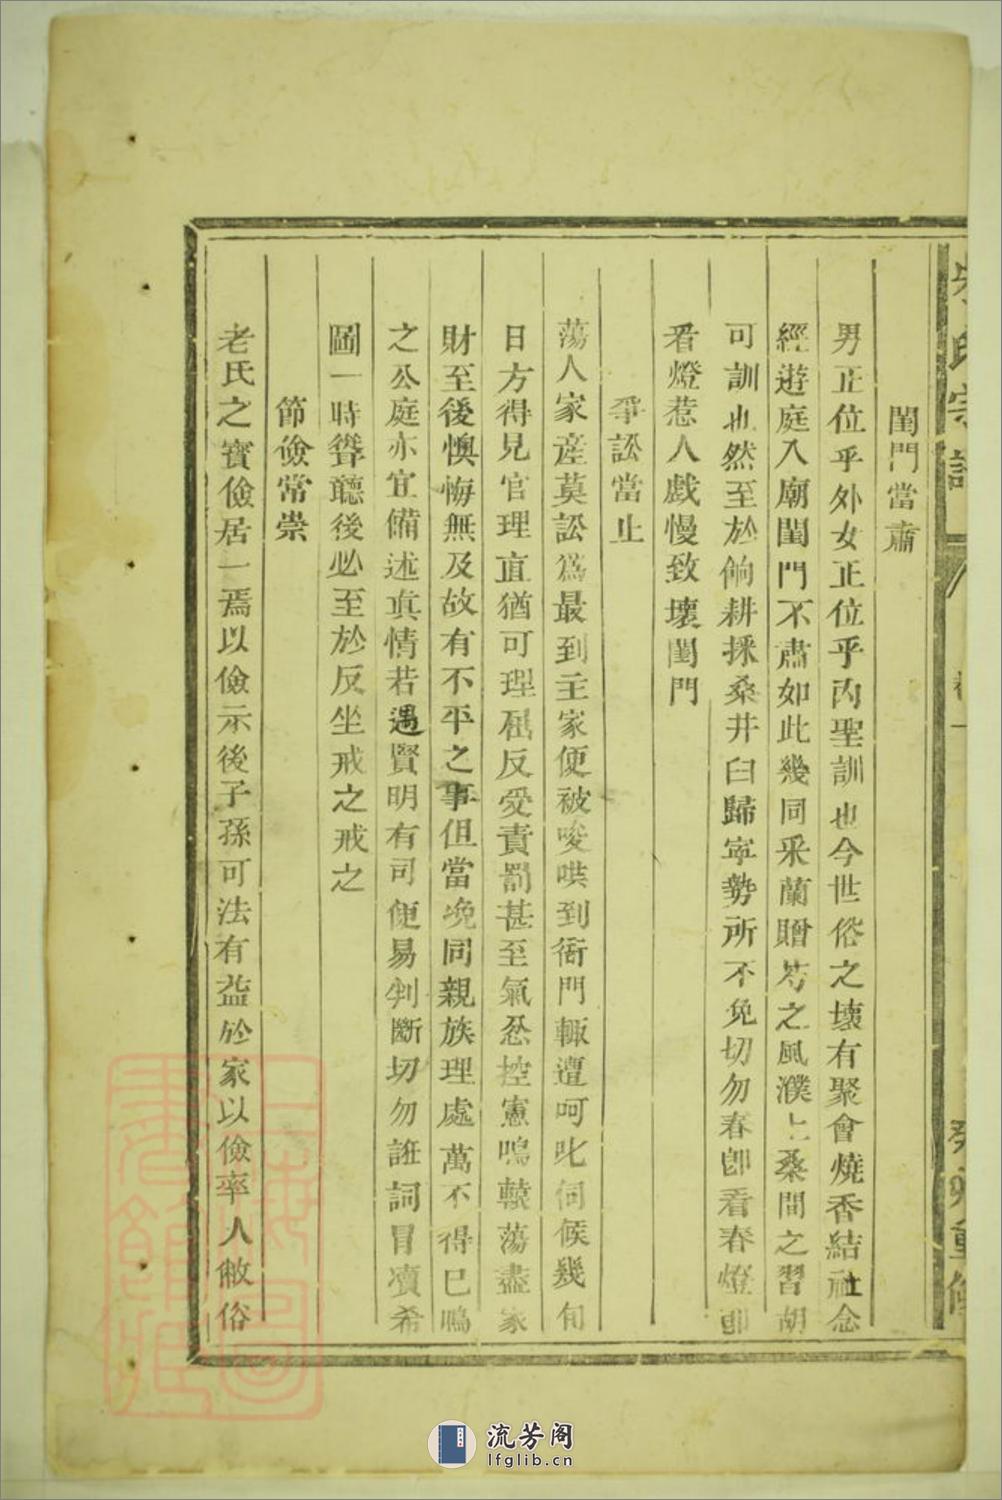 氏宗譜 卷一 重修
閨門當肅
男正位乎外女正位乎內聖訓也今世俗之壞有聚會燒香結社念
經遊庭入廟閨門不肅如此幾同采蘭贈芍之風濮上桑間之習胡
可訓也然至於餉耕採桑井臼歸寧勢所不免切勿春卽看春燈卽
看燈惹人戲慢致壞閨門
爭訟當止
蕩人家產莫訟爲最到主家便被唆哄到衙門輒遭呵叱伺候幾旬
日方得見官理直猶可理屈反受責罰甚至氣忿控憲鳴轅蕩盡家
財至後懊悔無及故有不平之事但當挽同親族理處萬不得已鳴
之公庭亦宜備述真情若遇賢明有司便易判斷切勿誑詞冒凟希
圖一時聳聽後必至於反坐戒之戒之
節儉常崇
老氏之寳儉居一焉以儉示後子孫可法有益於家以儉率人敝俗
流芳阁
lfglib.cn